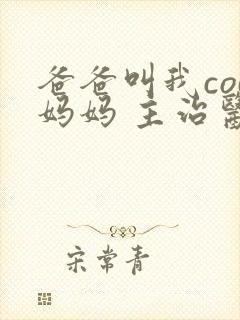 爸爸叫我co
妈妈 主治
宋常青